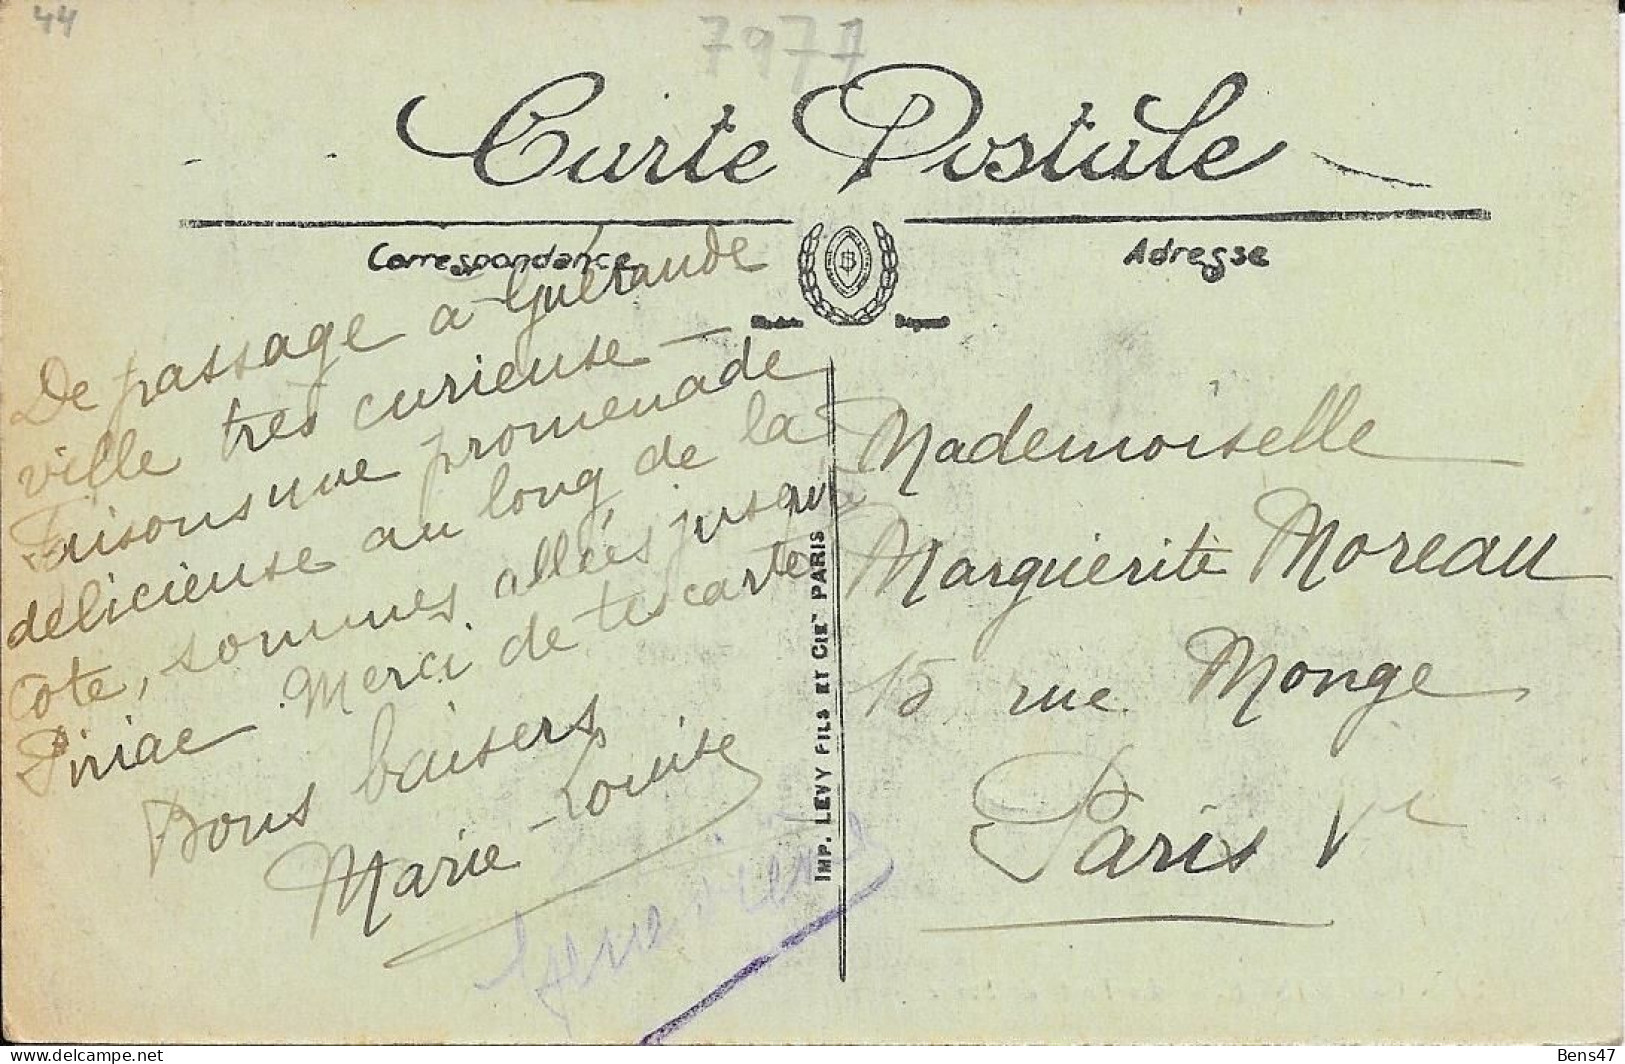 44
7977
Carte Postale
Correspondance
Adresse
De passage à Guérande
ville très curieuse —
Faisons une promenade
délicieuse au long de la
côte, sommes allées jusqu'
Piriac Merci de tes cartes
Bons baisers
Marie-Louise
IMP. LEVY FILS ET CIE PARIS
Mademoiselle
Marguerite Moreau
15 rue Monge
Paris Ve
Bens47